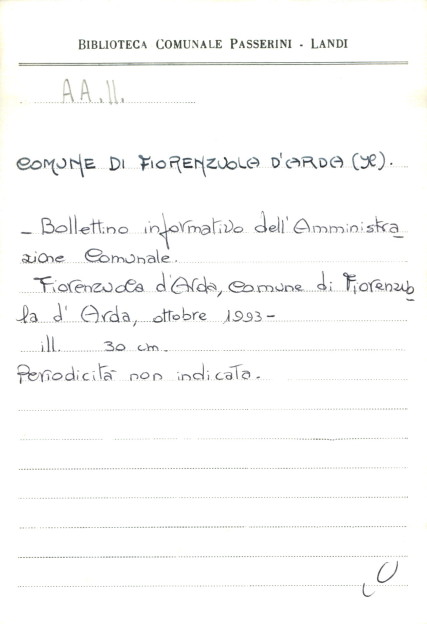 BIBLIOTECA COMUNALE PASSERINI - LANDI
AA.II.
COMUNE DI FIORENZUOLA D'ARDA
- Bollettino informativo dell'Amministra
zione Comunale.
Fiorenzuola d'Arda, Comune di Fiorenzuo
la d'Arda, ottobre 1993-
ill. 30 cm.
Periodicità non indicata.